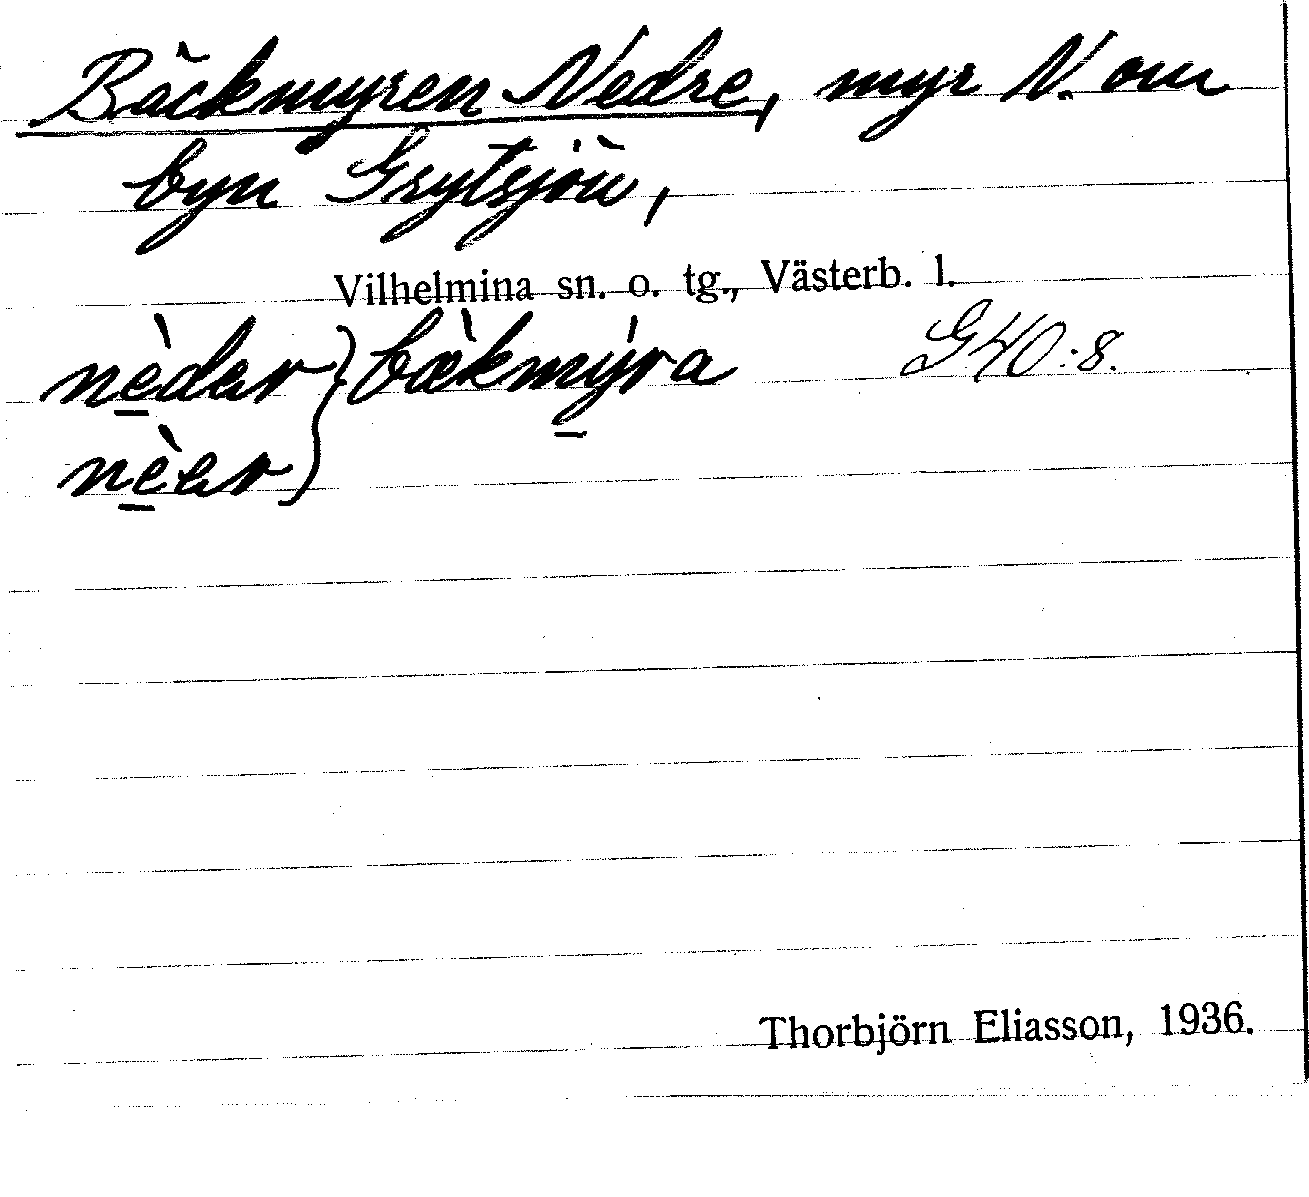 Bäckmyren Nedre, myr N. om
byn Grytsjön,
Vilhelmina sn. o. tg., Västerb. l.
nèdar } bækmýra G40:8.
nèar
Thorbjörn Eliasson, 1936.